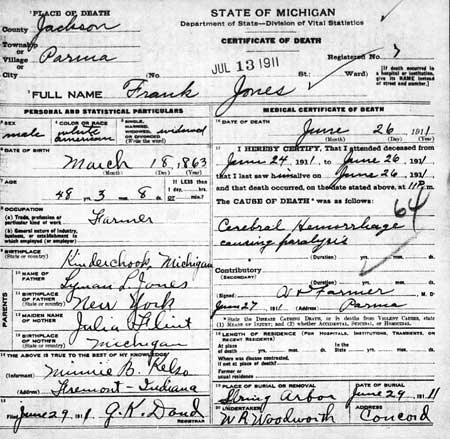 PLACE OF DEATH
County Jackson
Township
Village Parma
City
STATE OF MICHIGAN
Department of State—Division of Vital Statistics
CERTIFICATE OF DEATH
Registered No. 7
JUL 13 1911
St.; Ward)
[If death occurred in a hospital or institution, give its NAME instead of street and number.]
FULL NAME Frank Jones
PERSONAL AND STATISTICAL PARTICULARS
SEX
male
COLOR OR RACE
white
american
SINGLE, MARRIED, WIDOWED OR DIVORCED
(Write the word)
widowed
DATE OF BIRTH
March 18, 1863
(Month) (Day) (Year)
AGE
48 3 8
If LESS than 1 day, hrs.
OCCUPATION
(a) Trade, profession or particular kind of work
Farmer
(b) General nature of industry, business, or establishment in which employed (or employer)
BIRTHPLACE
(State or country)
Kinderhook, Michigan
PARENTS
NAME OF FATHER
Lyman L. Jones
BIRTHPLACE OF FATHER
(State or country)
New York
MAIDEN NAME OF MOTHER
Julia Flint
BIRTHPLACE OF MOTHER
(State or country)
Michigan
THE ABOVE IS TRUE TO THE BEST OF MY KNOWLEDGE
(Informant) Minnie B. Kelso
(Address) Fremont - Indiana
Filed June 29, 191
REGISTRAR
MEDICAL CERTIFICATE OF DEATH
DATE OF DEATH
June 26 1911
(Month) (Day) (Year)
I HEREBY CERTIFY, That I attended deceased
from June 24, 1911 to June 26, 1911
that I last saw him alive on June 26, 191
and that death occurred, on the date stated above, at m.
The CAUSE OF DEATH* was as follows:
64
Cerebral Hemorrhage
causing paralysis
(Duration) yrs. ds.
Contributory
(SECONDARY)
(Duration)
(Signed) Farmer M. D.
June 27 191 (Address) Parma
* State the DISEASE CAUSING DEATH, or in deaths from VIOLENT CAUSES, state (1) MEANS OF INJURY; and (2) whether ACCIDENTAL, SUICIDAL, or HOMICIDAL.
LENGTH OF RESIDENCE (FOR HOSPITALS, INSTITUTIONS, TRANSIENTS, OR RECENT RESIDENTS)
At place of death yrs. mos. ds. In the State yrs. mos. ds.
Where was disease contracted, if not at place of death?
Former or usual residence
PLACE OF BURIAL OR REMOVAL
Spring Arbor
DATE OF BURIAL
June 29, 1911
UNDERTAKER
W R Woodworth
ADDRESS
Concord